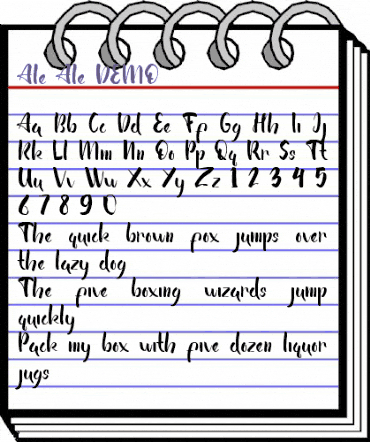 Ale Ale DEMO
Aa Bb Cc Dd Ee Ff Gg Hh Ii Jj
Kk Ll Mm Nn Oo Pp Qq Rr Ss Tt
Uu Vv Ww Xx Yy Zz 1 2 3 4 5
6 7 8 9 0
The quick brown fox jumps over
the lazy dog
The five boxing wizards jump
quickly
Pack my box with five dozen liquor
jugs